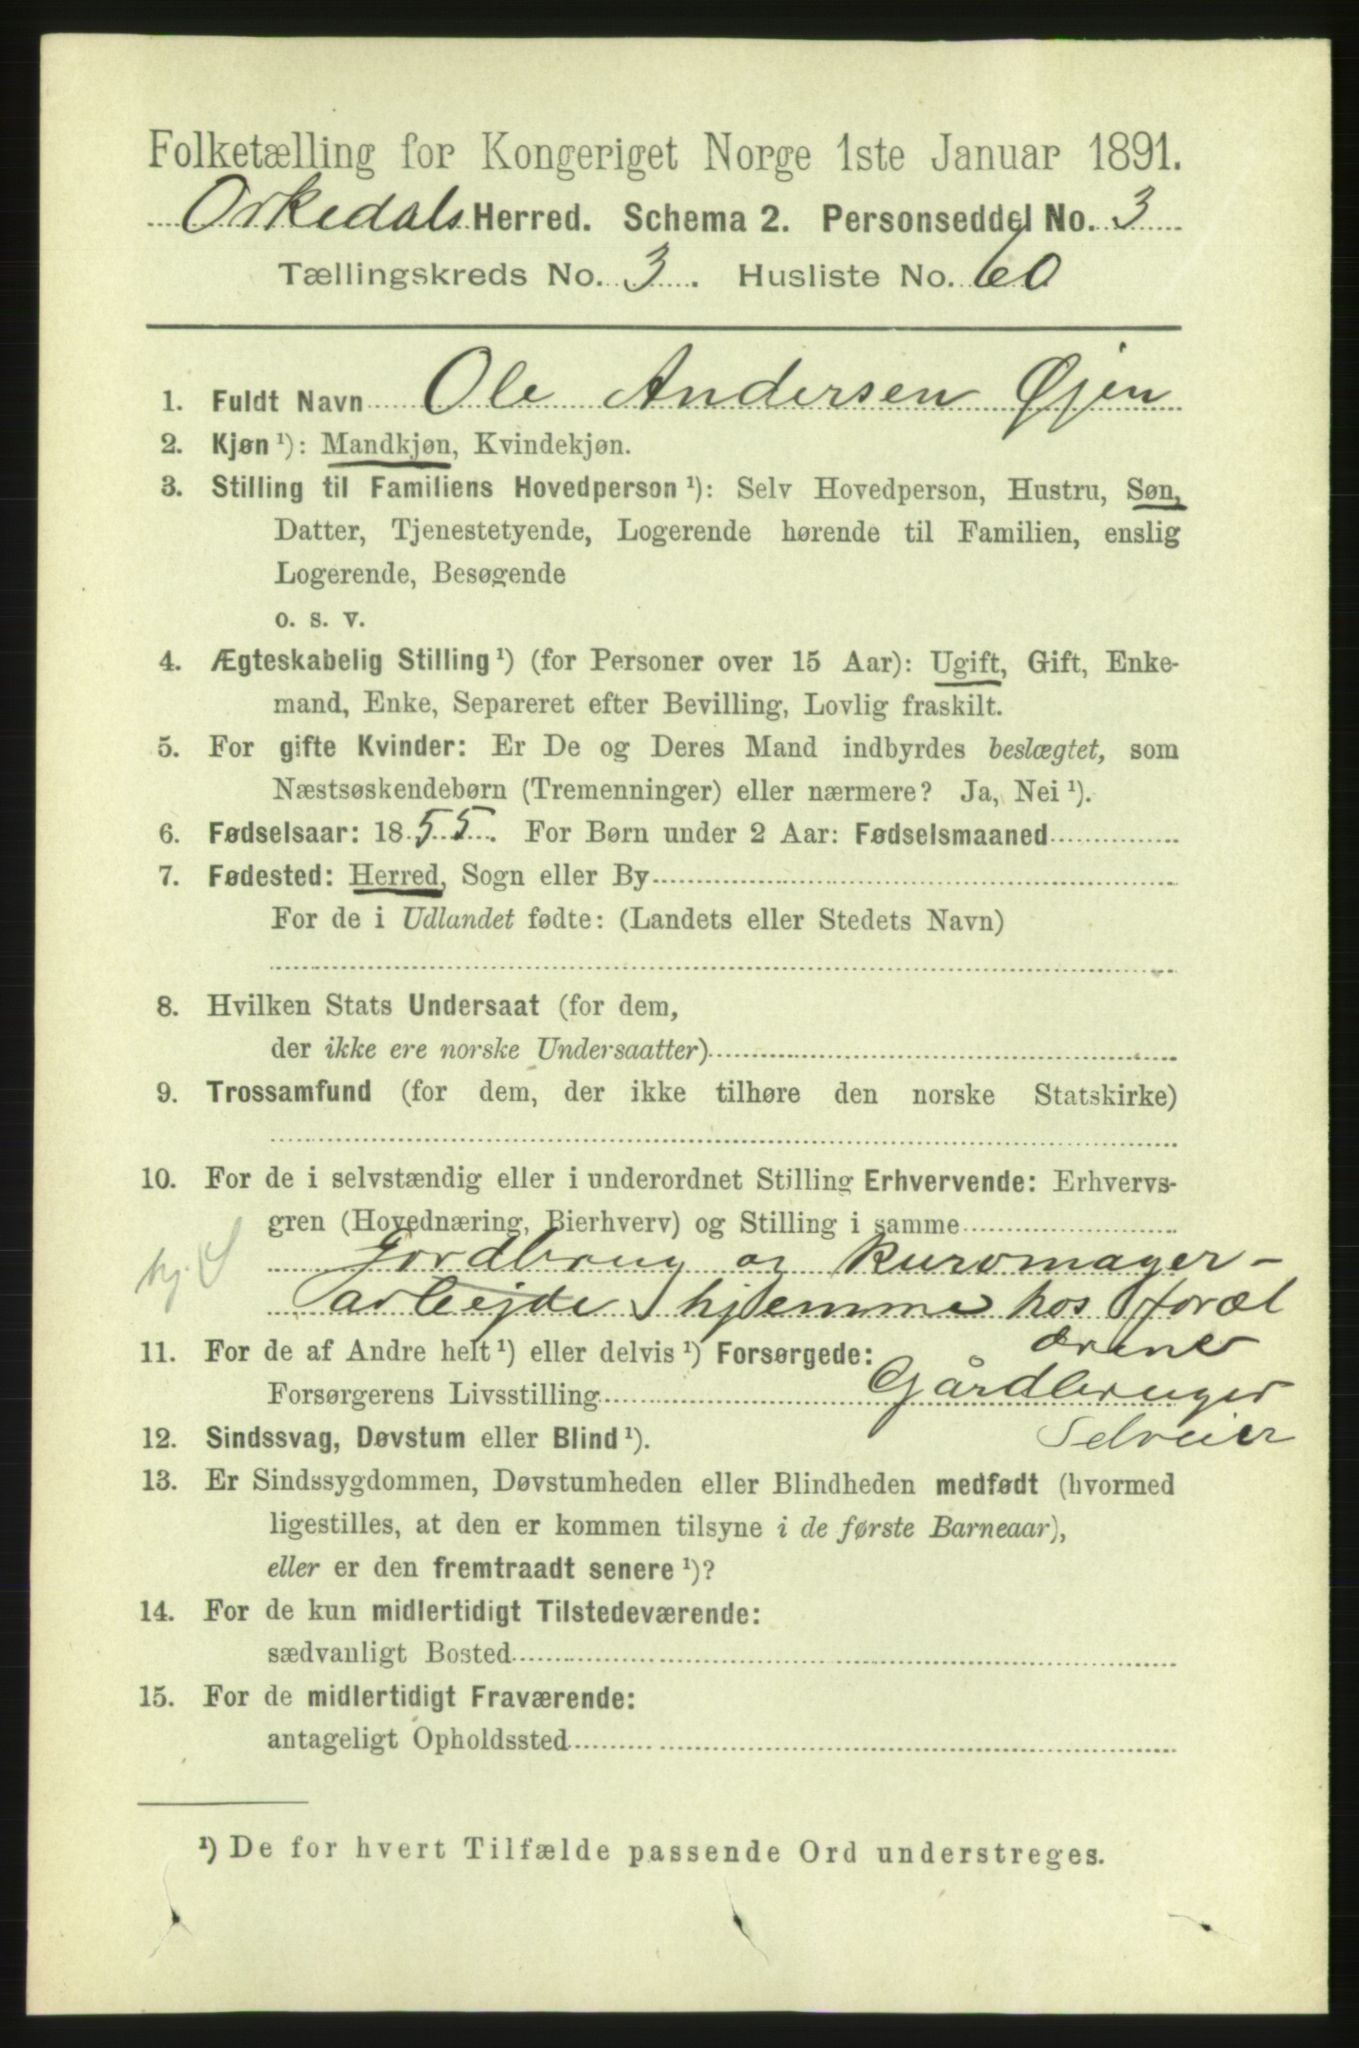 Folketælling for Kongeriget Norge 1ste Januar 1891.
Orkedals Herred. Schema 2. Personseddel No. 3
Tællingskreds No. 3. Husliste No. 60
1. Fuldt Navn Ole Andersen Øjen
2. Kjøn ¹): Mandkjøn, Kvindekjøn.
3. Stilling til Familiens Hovedperson ¹): Selv Hovedperson, Hustru, Søn,
Datter, Tjenestetyende, Logerende hørende til Familien, enslig
Logerende, Besøgende
o. s. v.
4. Ægteskabelig Stilling ¹) (for Personer over 15 Aar): Ugift, Gift, Enke-
mand, Enke, Separeret efter Bevilling, Lovlig fraskilt.
5. For gifte Kvinder: Er De og Deres Mand indbyrdes beslægtet, som
Næstsøskendebørn (Tremenninger) eller nærmere? Ja, Nei ¹).
6. Fødselsaar: 1855. For Børn under 2 Aar: Fødselsmaaned
7. Fødested: Herred, Sogn eller By
For de i Udlandet fødte: (Landets eller Stedets Navn)
8. Hvilken Stats Undersaat (for dem,
der ikke ere norske Undersaatter)
9. Trossamfund (for dem, der ikke tilhøre den norske Statskirke)
10. For de i selvstændig eller i underordnet Stilling Erhvervende: Erhvervs-
gren (Hovednæring, Bierhverv) og Stilling i samme
hj. S Jordbrug og kurvmager-
arbejde hjemme hos foræl
drene
11. For de af Andre helt ¹) eller delvis ¹) Forsørgede:
Forsørgerens Livsstilling Gårdbruger
Selveier
12. Sindssvag, Døvstum eller Blind ¹).
13. Er Sindssygdommen, Døvstumheden eller Blindheden medfødt (hvormed
ligestilles, at den er kommen tilsyne i de første Barneaar),
eller er den fremtraadt senere ¹)?
14. For de kun midlertidigt Tilstedeværende:
sædvanligt Bosted
15. For de midlertidigt Fraværende:
antageligt Opholdssted
¹) De for hvert Tilfælde passende Ord understreges.